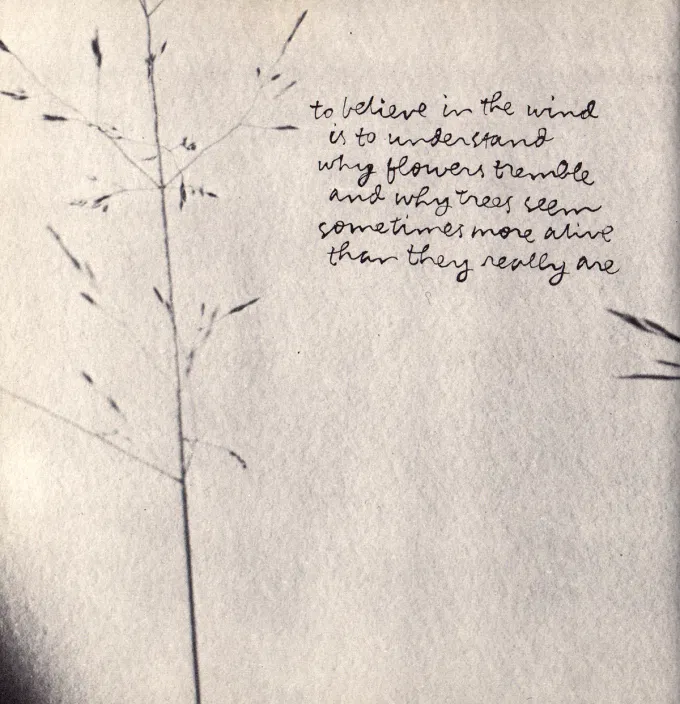 to believe in the wind
is to understand
why flowers tremble
and why trees seem
sometimes more alive
than they really are